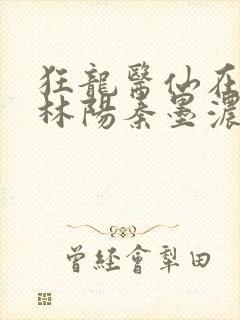 狂龍醫仙在
林陽秦墨濃
曾經會犁田